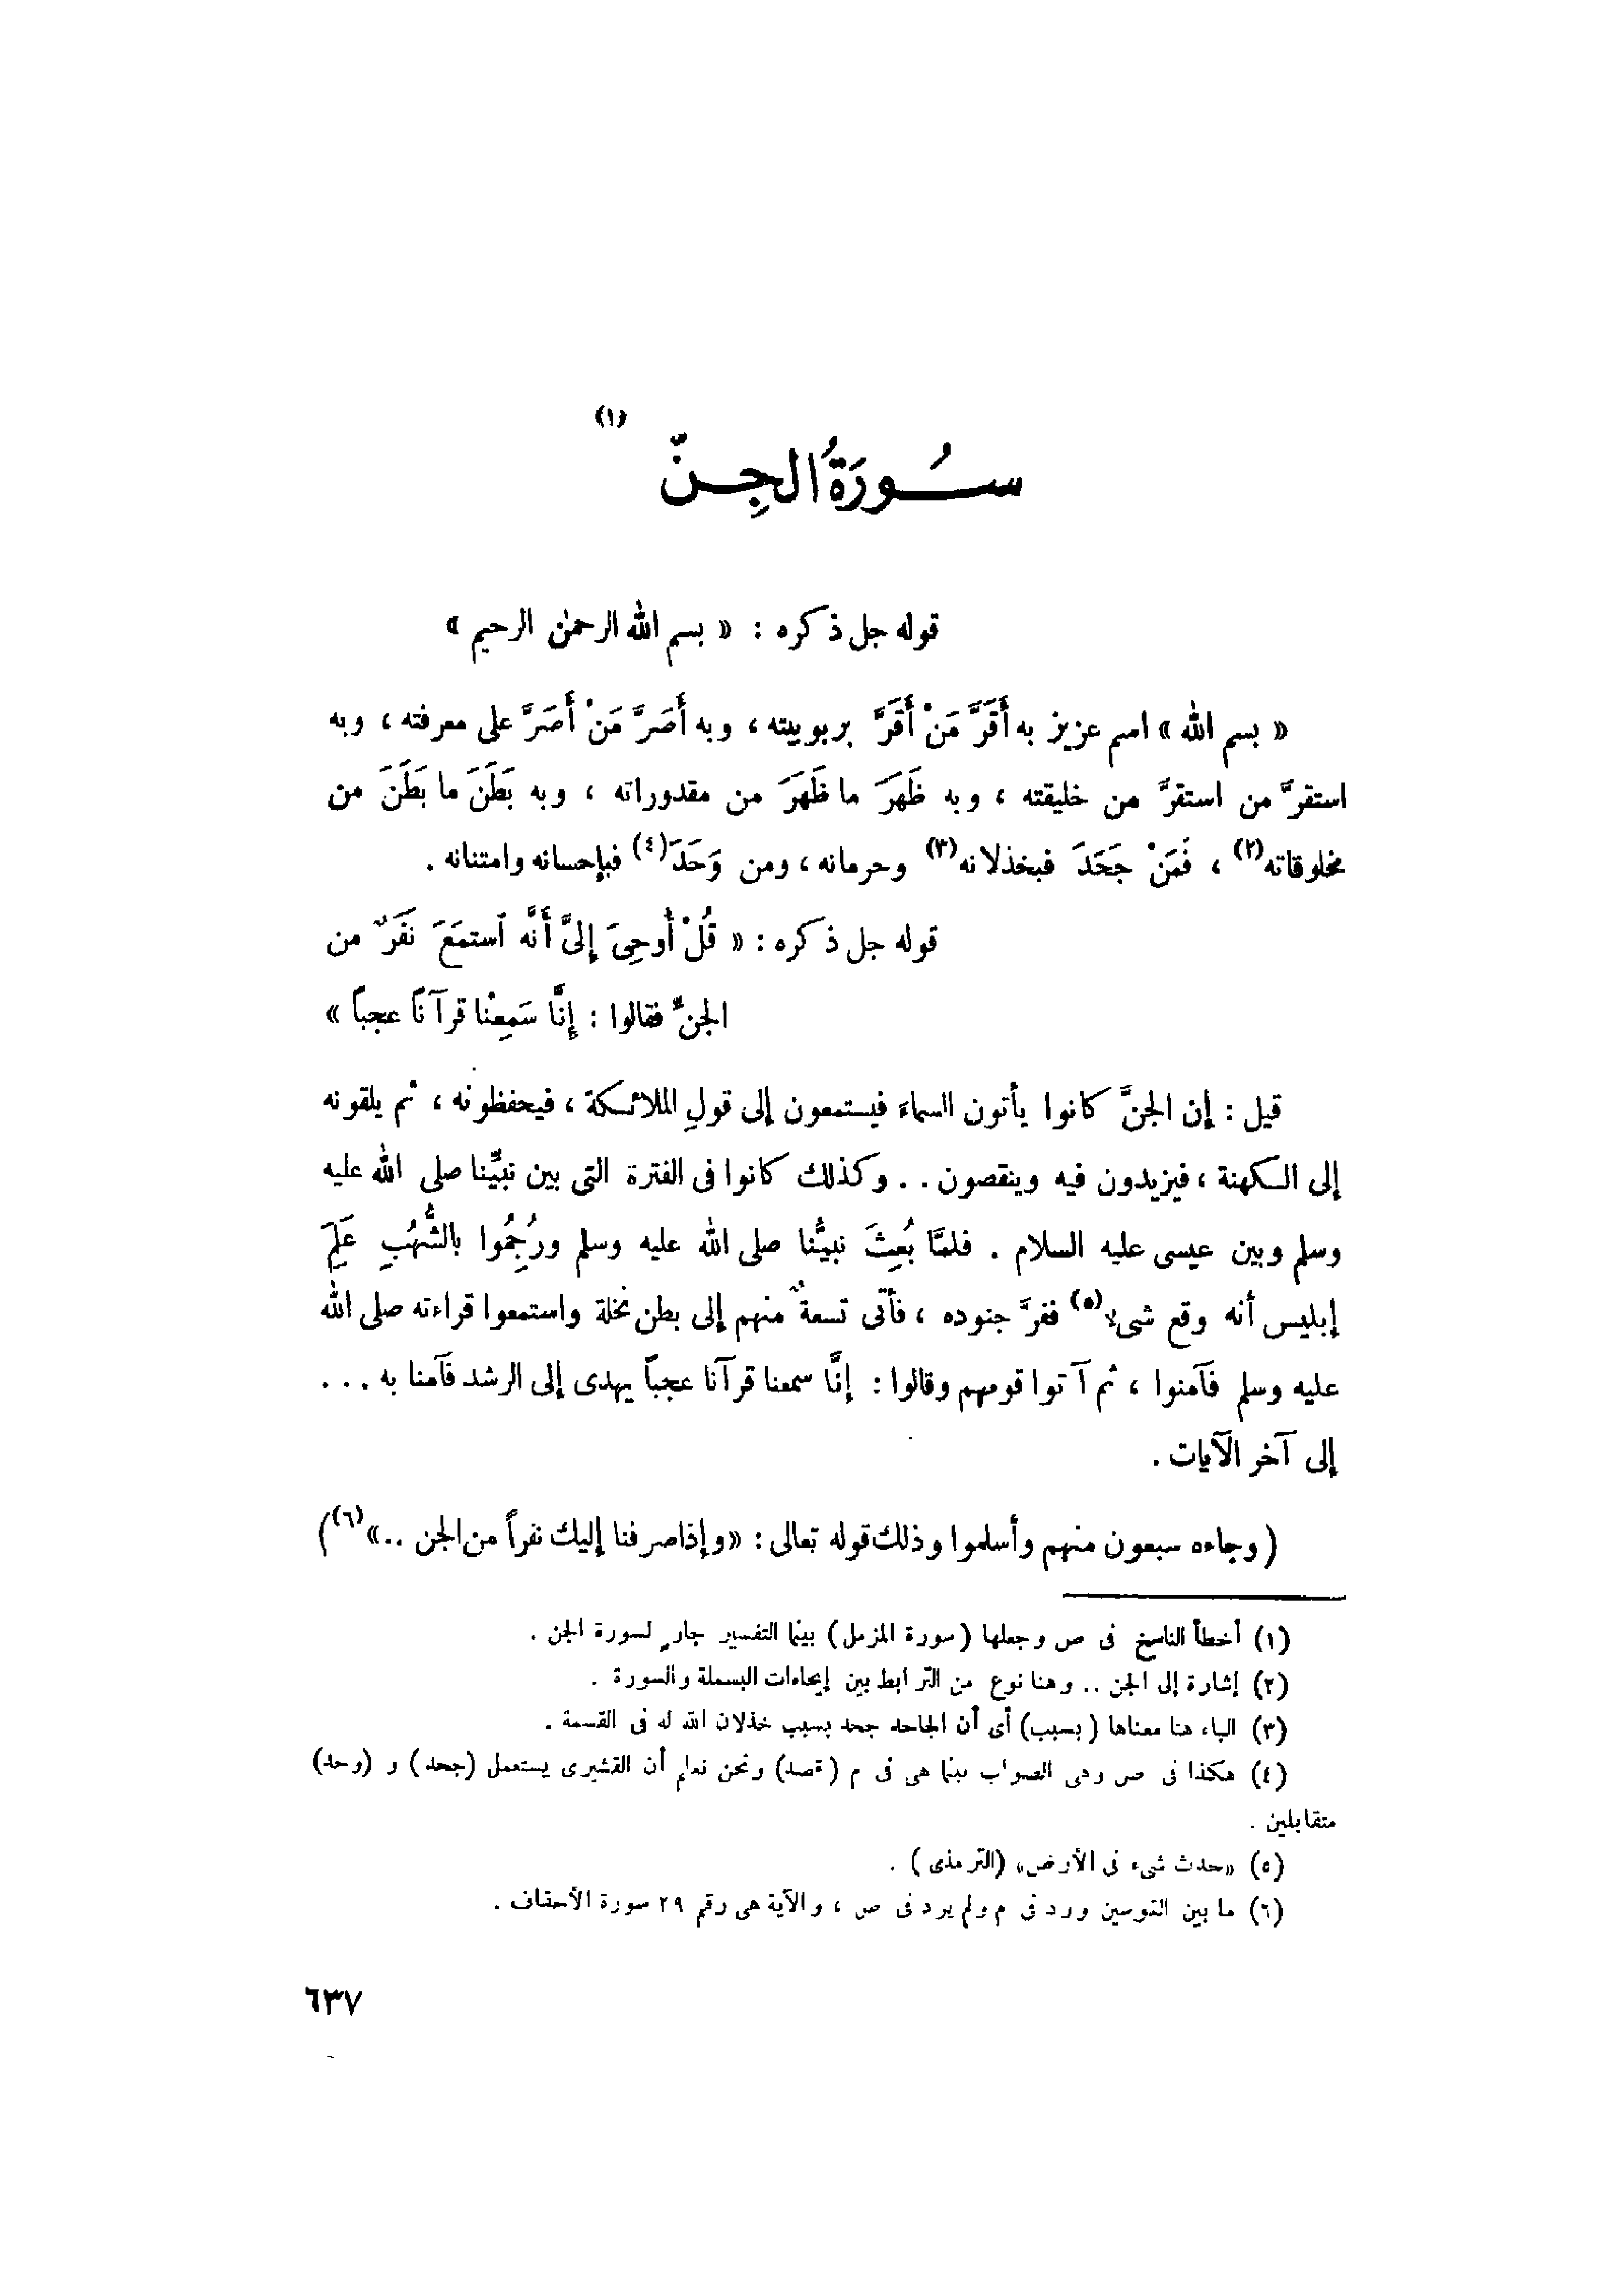 (١)
سُورَةُ الجِنّ
قوله جل ذكره : « بسم الله الرحمٰن الرحيم »
« بسم الله » اسم عزيز به أَقَرَّ مَنْ أَقَرَّ بربوبيته ، وبه أَصَرَّ مَنْ أَصَرَّ على معرفته ، وبه
استقرَّ من استقرَّ من خليقته ، وبه ظَهَرَ ما ظَهَرَ من مقدوراته ، وبه بَطَنَ ما بَطَنَ من
مخلوقاته(٢) ، فَمَنْ جَحَدَ فبخذلانه(٣) وحرمانه ، ومن وَحَدَ(٤) فبإحسانه وامتنانه .
قوله جل ذكره : « قُلْ أُوحِىَ إِلىَّ أَنَّه ٱستمَعَ نَفَرٌ من
الجنِّ فقالوا : إِنَّا سَمِعْنا قرآناً عجباً »
قيل : إن الجنَّ كانوا يأتون السماءَ فيستمعون إلى قولِ الملائكة ، فيحفظونه ، ثم يلقونه
إلى الكهنة ، فيزيدون فيه وينقصون . . وكذلك كانوا فى الفترة التى بين نبيِّنا صلى الله عليه
وسلم وبين عيسى عليه السلام . فلمَّا بُعِثَ نبيُّنا صلى الله عليه وسلم ورُجِمُوا بالشُّهُبِ عَلِمَ
إبليس أنه وقع شىء(٥) ففرَّ جنوده ، فأتى تسعةٌ منهم إلى بطن نخلة واستمعوا قراءته صلى الله
عليه وسلم فآمنوا ، ثم آتوا قومهم وقالوا : إنَّا سمعنا قرآنا عجباً يهدى إلى الرشد فآمنا به . . .
إلى آخر الآيات .
( وجاءه سبعون منهم وأسلموا وذلك قوله تعالى : « وإذ صرفنا إليك نفراً من الجن .. »(٦) )
(١) أخطأ الناسخ فى ص وجعلها (سورة المزمل) بينما التفسير جارٍ لسورة الجن .
(٢) إشارة إلى الجن .. وهنا نوع من الترابط بين إيحاءات البسملة والسورة .
(٣) الباء هنا معناها ( بسبب) أى أن الجاحد جحد بسبب خذلان الله له فى القسمة .
(٤) هكذا فى ص وهى الصواب بينما هى فى م (قصد) ونحن نعلم أن القشيرى يستعمل (جحد) و (وحد)
متقابلين .
(٥) «حدث شىء فى الأرض» (الترمذى ) .
(٦) ما بين القوسين ورد فى م ولم يرد فى ص ، والآية هى رقم ٢٩ سورة الأحقاف .
٦٣٧